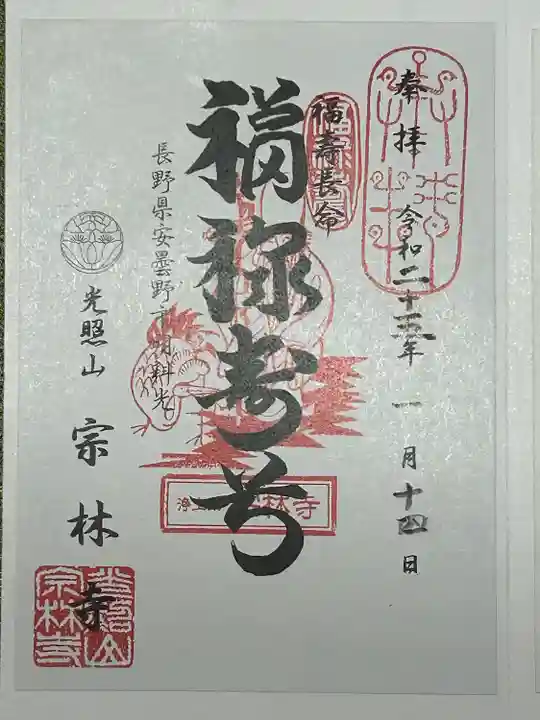 奉拝
令和二十 年 一月十四日
福壽長命
福禄寿
長野県安曇野市明科光
光照山
宗林寺
浄 林寺
光照山
宗林寺